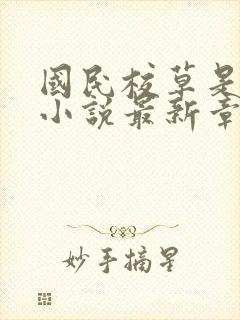 國民校草是
小説最新章
妙手摘星